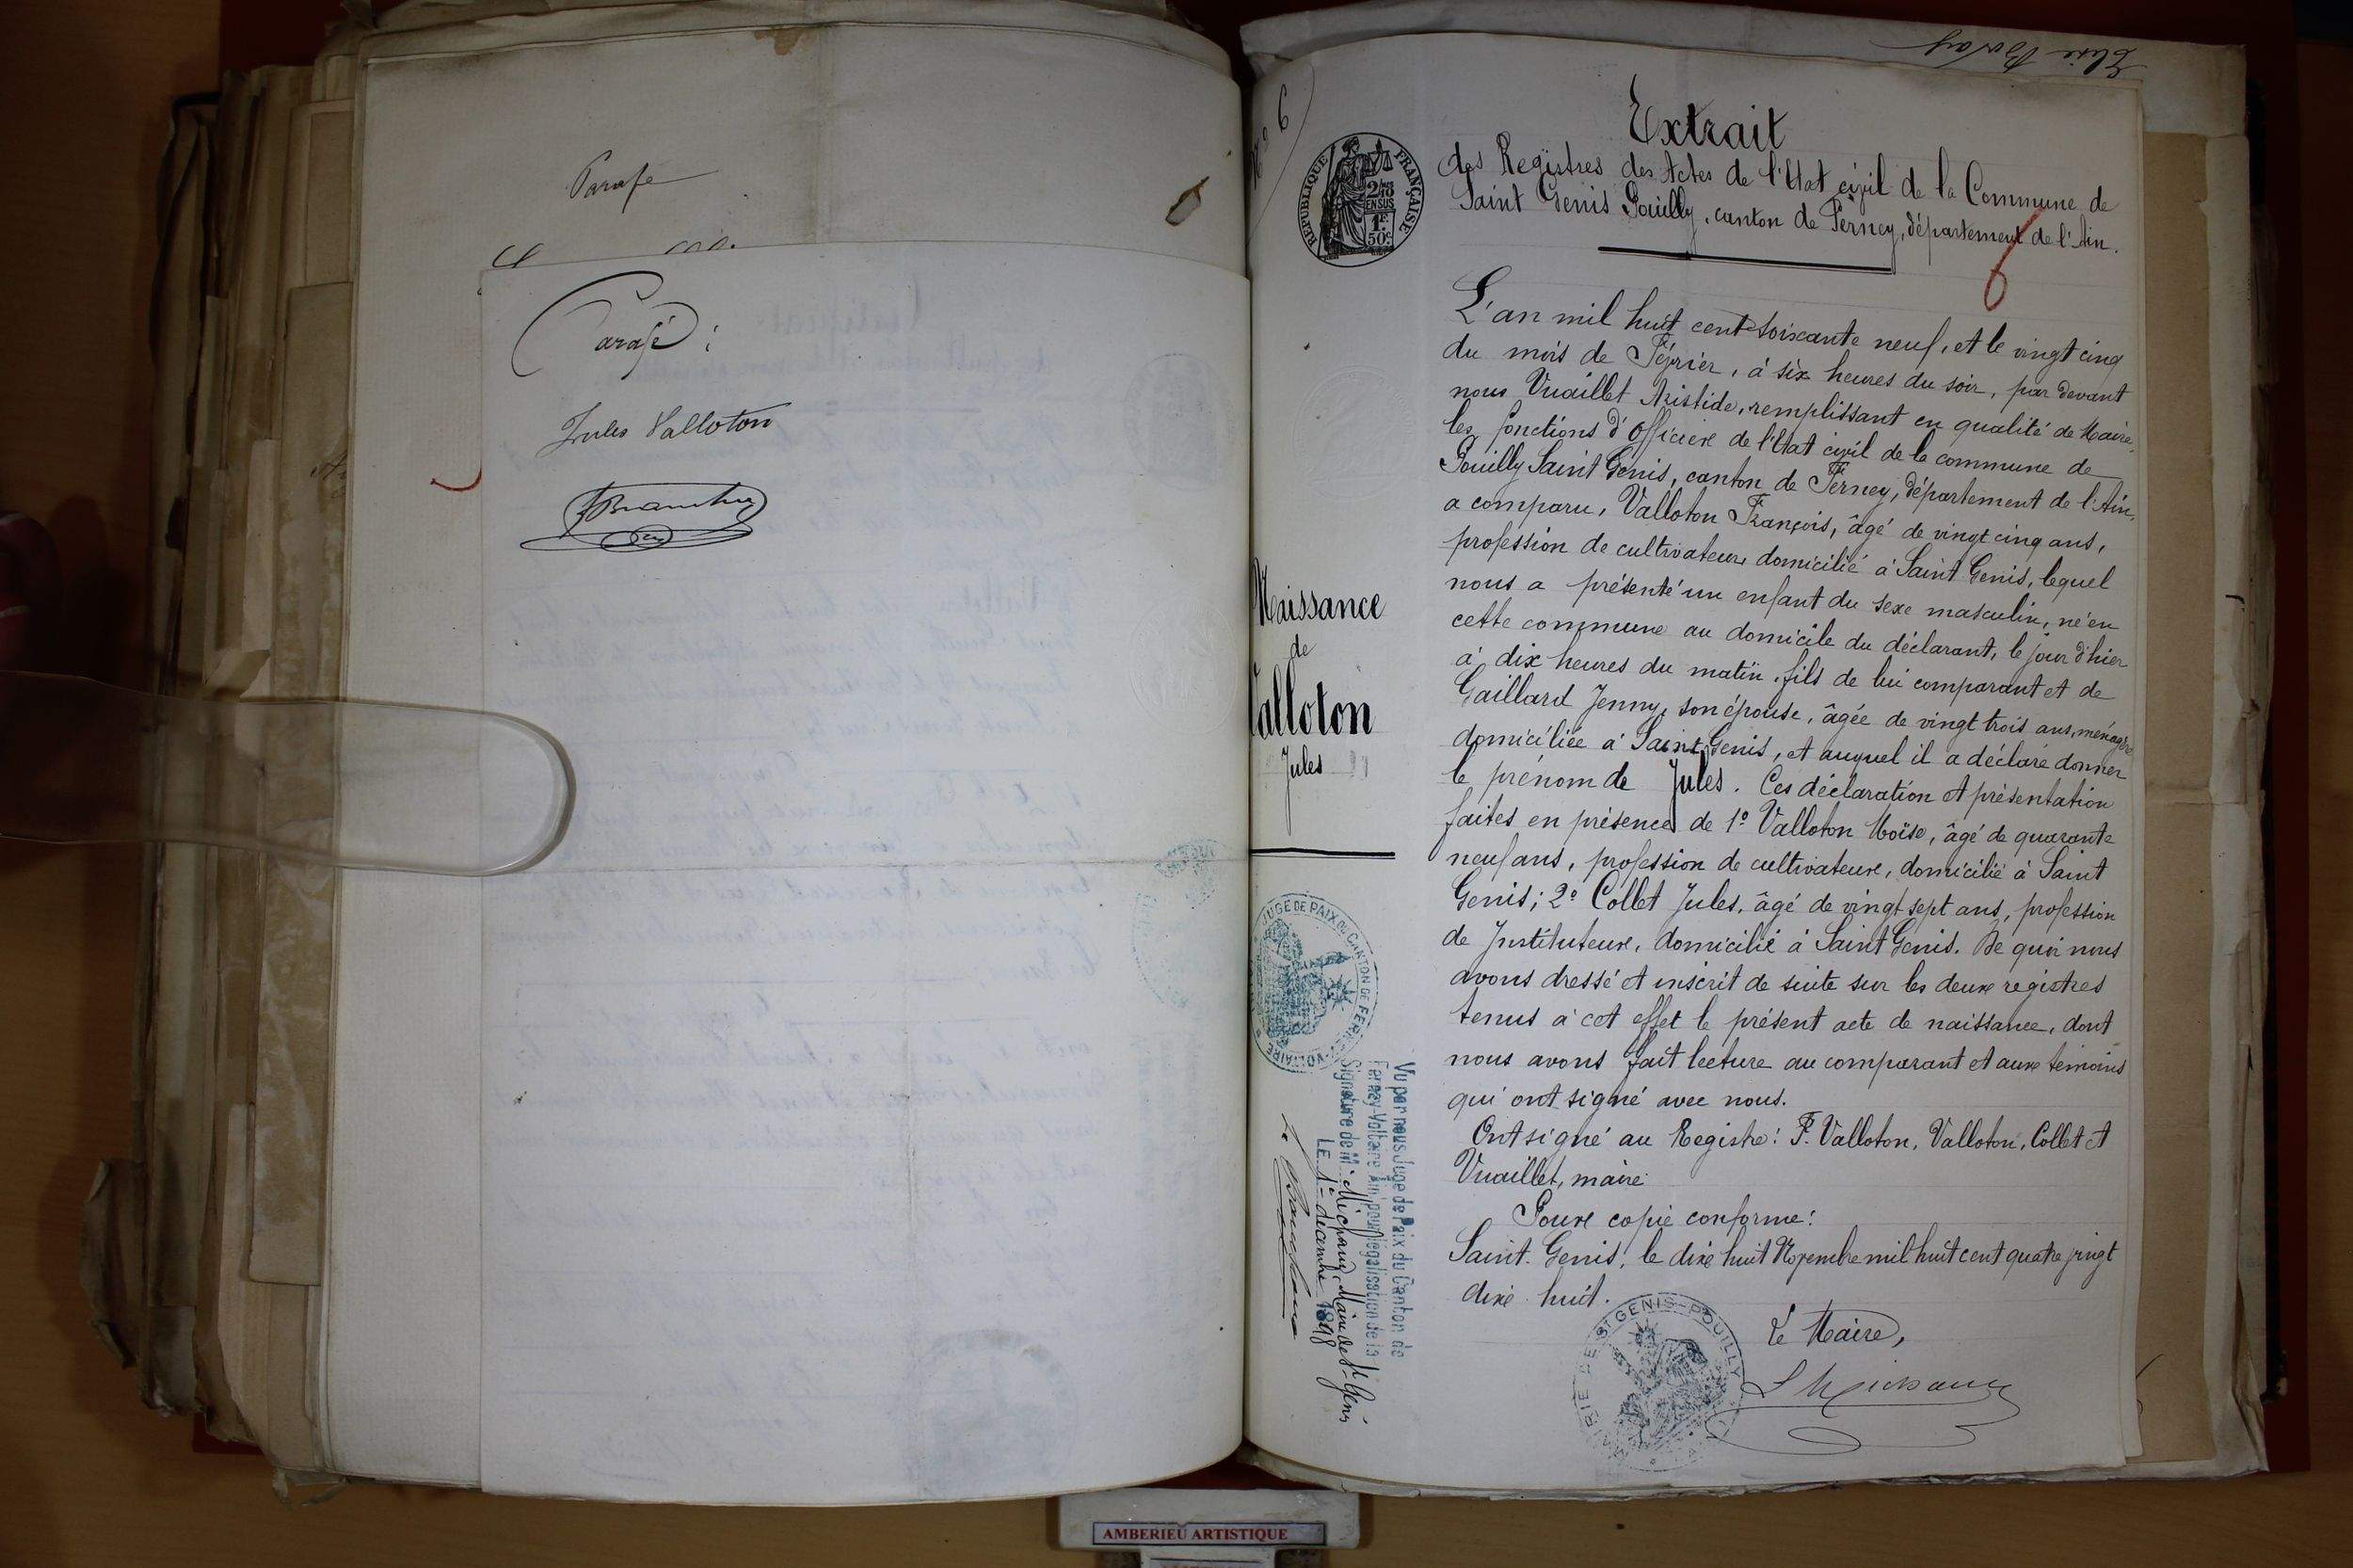 Parafe
Parafé :
Jules Valloton
Elise
N.º 6
RÉPUBLIQUE FRANÇAISE
2/10
EN SUS
1F.
50c.
Extrait
des Registres des Actes de l'Etat civil de la Commune de
Saint Genis Pouilly, canton de Ferney, département de l'Ain.
Naissance
de
Valloton
Jules
L'an mil huit cent soixante neuf, et le vingt cinq
du mois de Février, à six heures du soir, par devant
nous Vuaillet Aristide, remplissant en qualité de Maire,
les fonctions d'officier de l'Etat civil de la commune de
Pouilly Saint Genis, canton de Ferney, département de l'Ain,
a comparu, Valloton François, âgé de vingt cinq ans,
profession de cultivateur, domicilié à Saint Genis, lequel
nous a présenté un enfant du sexe masculin, né en
cette commune au domicile du déclarant, le jour d'hier
à dix heures du matin, fils de lui comparant et de
Gaillard Jenny, son épouse, âgée de vingt trois ans, ménagère
domiciliée à Saint Genis, et auquel il a déclaré donner
le prénom de Jules. Ces déclaration et présentation
faites en présence de 1º Valloton Moïse, âgé de quarante
neuf ans, profession de cultivateur, domicilié à Saint
Genis; 2º Collet Jules, âgé de vingt sept ans, profession
de Instituteur, domicilié à Saint Genis. De quoi nous
avons dressé et inscrit de suite sur les deux registres
tenus à cet effet le présent acte de naissance, dont
nous avons fait lecture au comparant et aux témoins
qui ont signé avec nous.
Ont signé au Registre: F. Valloton, Valloton, Collet et
Vuaillet, maire.
Pour copie conforme:
Saint-Genis, le dix huit Novembre mil huit cent quatre vingt
dix huit.
Le Maire,
L Michaud
MAIRIE DE ST GENIS-POUILLY
JUGE DE PAIX DU CANTON DE FERNEY-VOLTAIRE
Vu par nous Juge de Paix du Canton de
Ferney-Voltaire Ain pour légalisation de la
Signature de M. Michaud, Maire de St Genis
LE 1er décembre 1898
AMBERIEU ARTISTIQUE